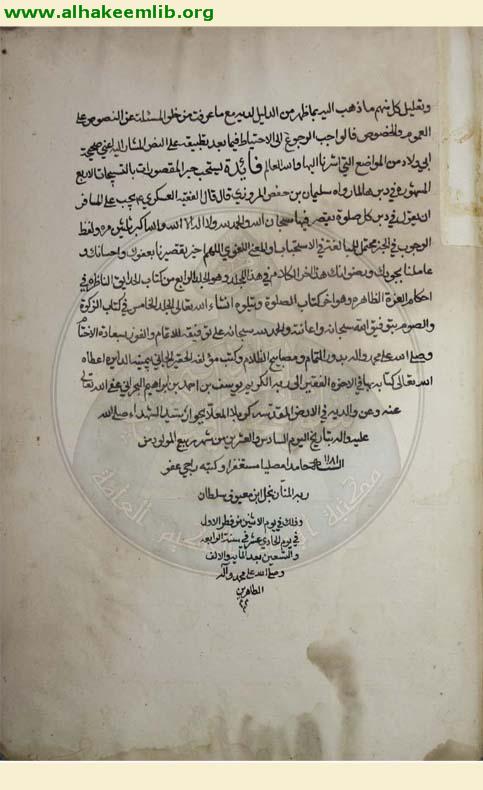 www.alhakeemlib.org
وتعليل كل منهم ما ذهب اليه بما ظهر من الدليل لديه مع ما عرفت من خلو المسئلة عن النصوص على
العموم والخصوص فالواجب الرجوع الى الاحتياط فيما بعد تطبيقه على النص المشار اليه اعني صحيحة
ابي ولاد من المواضع التي اشرنا اليها والله العالم فائدة يستحب جبر المقصورات بالتسبيحات الاربع
المشهورة في دبرها لما رواه سليمان بن حفص المروزي قال قال الفقيه العسكري ع يجب على المسافر
ان يقول في دبر كل صلوة يقصر فيها سبحان الله والحمد لله ولا اله الا الله والله اكبر ثلثين مرة ولفظ
الوجوب في الخبر محتمل للمبالغة في الاستحباب والمعنى اللغوي اللهم اجبر تقصيرنا بعفوك واحسانك و
عاملنا بجودك ورضوانك هذا اخر الكلام في هذا المجلد وهو المجلد الرابع من كتاب الحدايق الناظرة في
احكام العترة الطاهرة وهو اخر كتاب الصلوة ويتلوه انشاء الله تعالى المجلد الخامس في كتاب الزكوة
والصوم بتوفيق الله سبحانه واعانته والحمد لله سبحانه على توفيقه للاتمام والفوز بسعادة الاختتام
وصلى الله على محمد واله بدور التمام ومصابيح الظلام وكتب مؤلفه الحقير الجاني بيمينه الداثرة اعطاه
الله تعالى كتابه بها في الاخرة الفقير الى ربه الكريم يوسف بن احمد بن ابراهيم البحراني عفى الله تعالى
عنه وعن والديه في الارض المقدسة كربلا المعلى بجوار سيد الشهداء صلى الله
عليه واله بتاريخ اليوم السادس والعشرين من شهر ربيع المولود من
السنة ١١٨١ حامدا مصليا مستغفرا وكتبه راجي عفو
ربه المنان
وذلك في يوم الاثنين من فطر الاول
في يوم الحادي عشر في سنة الرابعة
والتسعين بعد المايه والالف
وصلى الله على محمد واله
الطاهرين